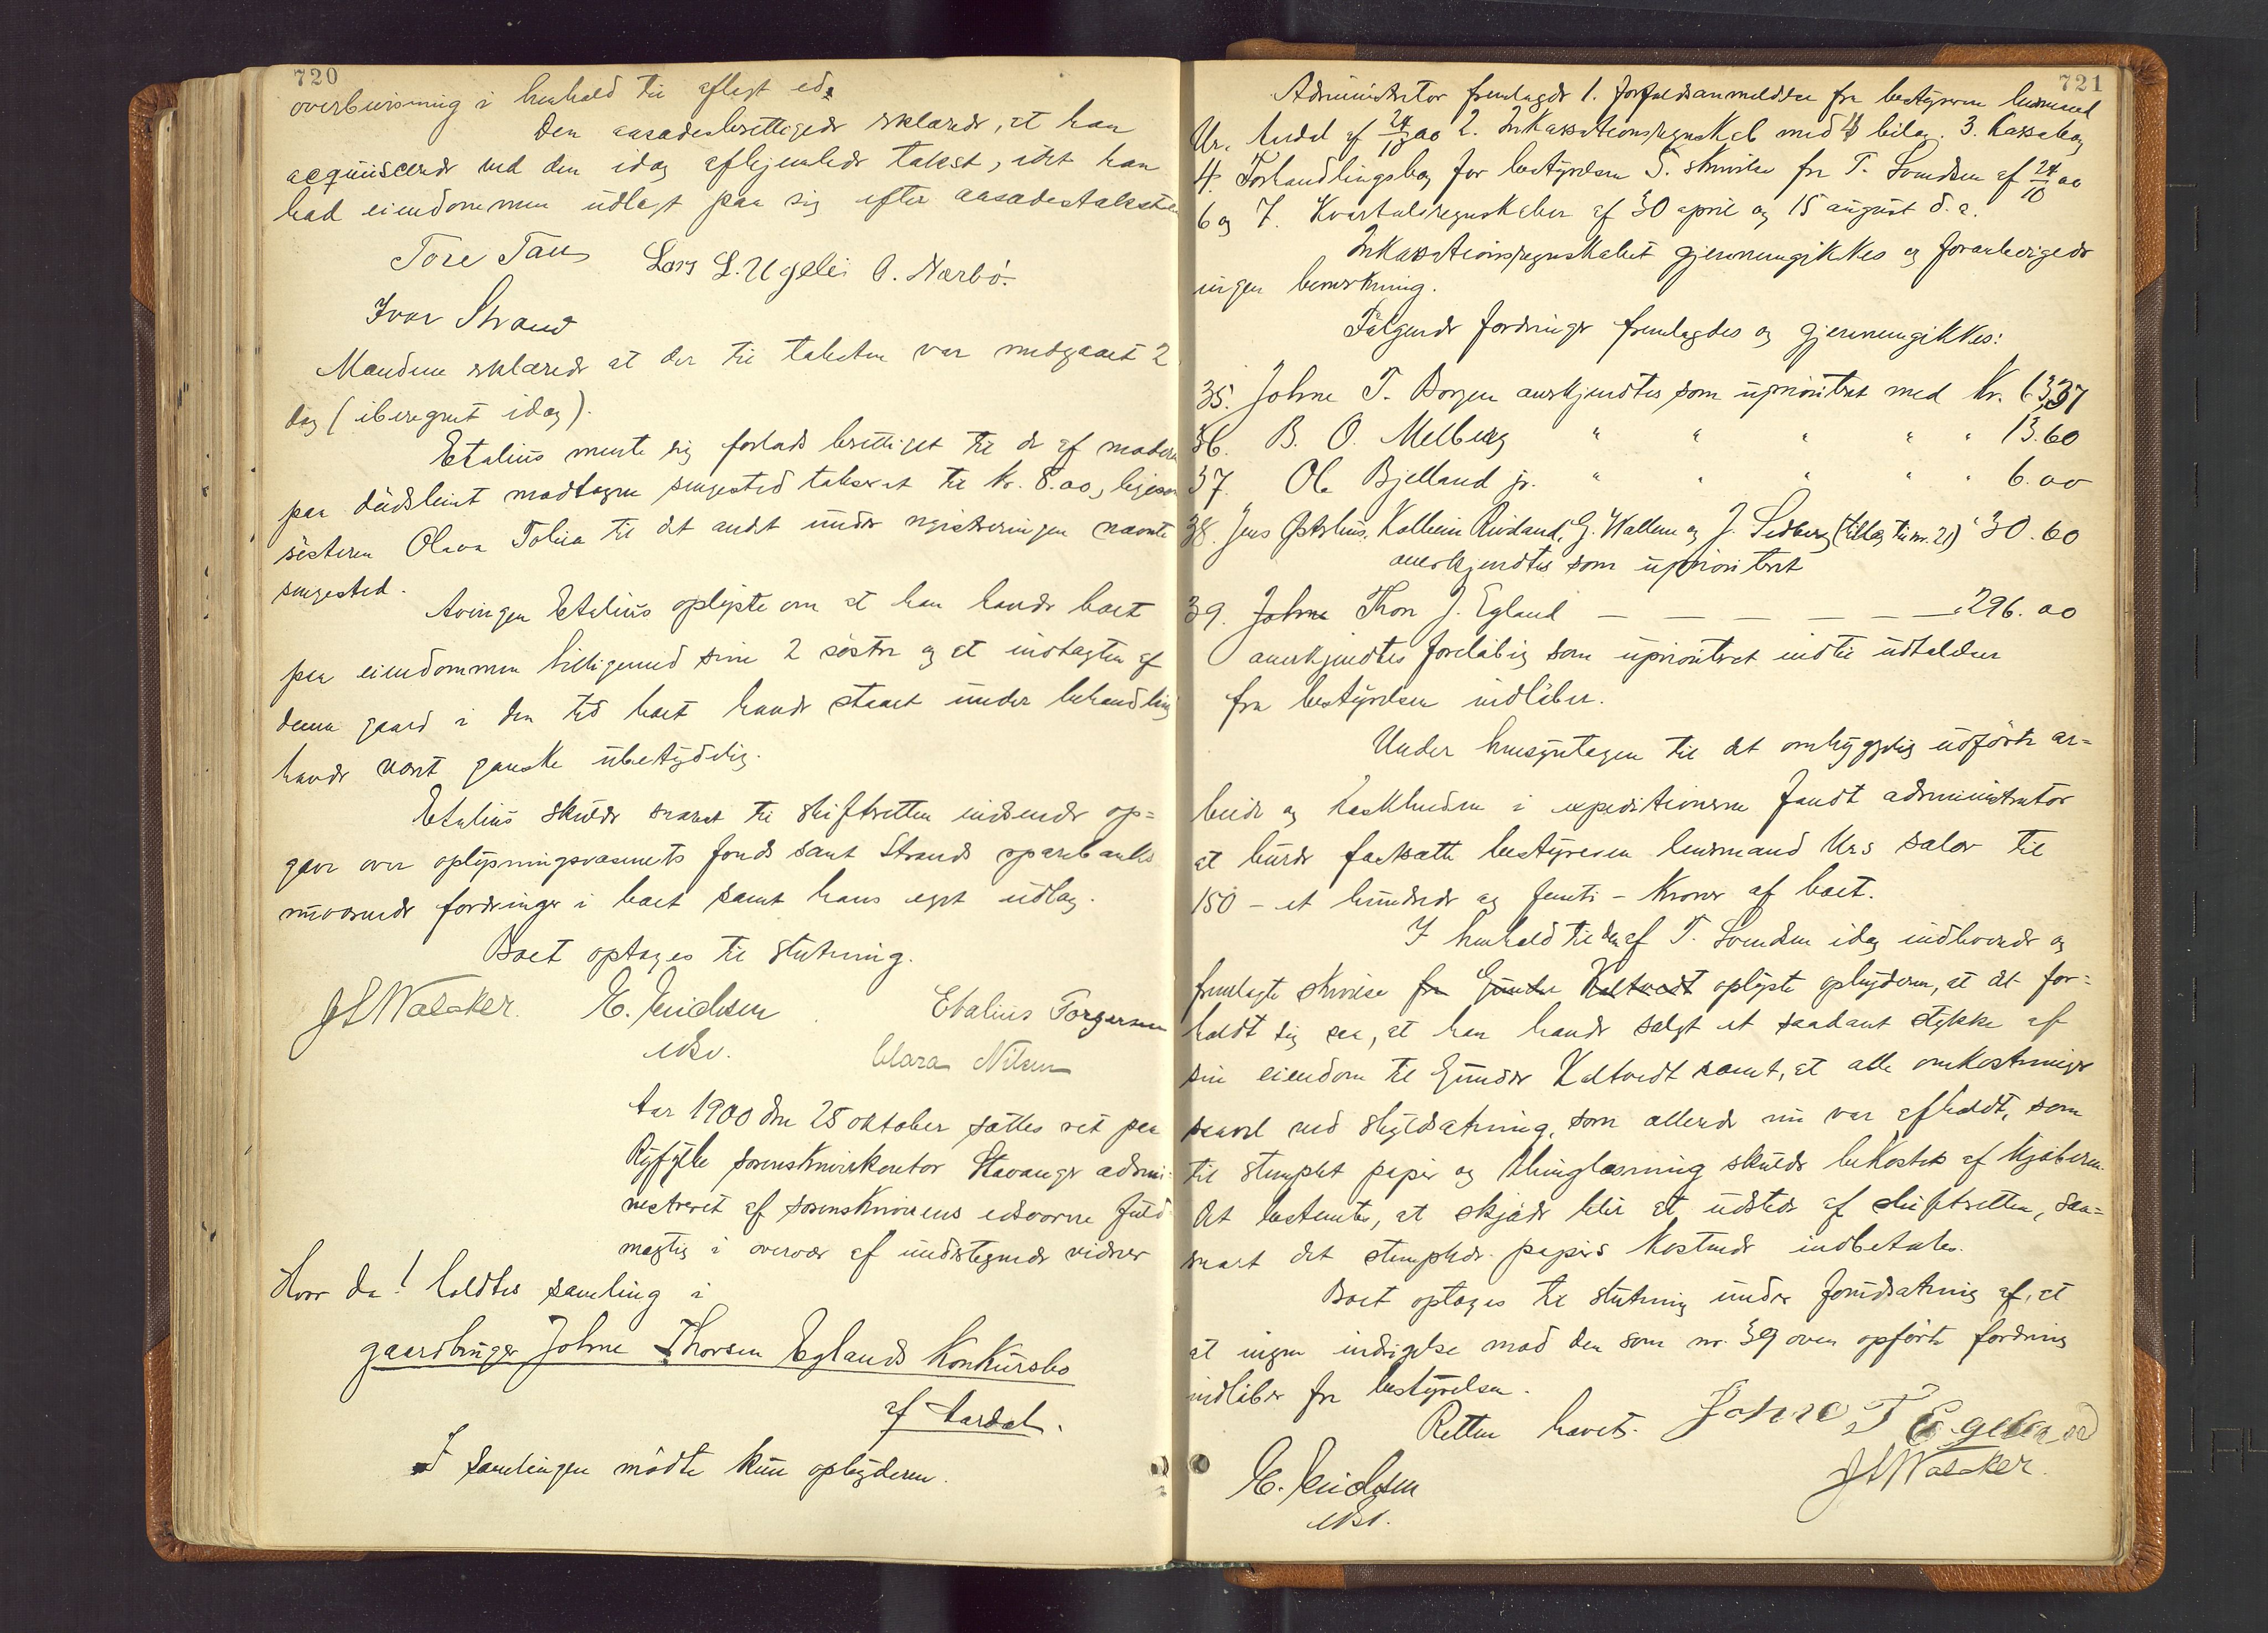 720
overbevisning i henhold til aflagt ed.
Den aasædesberettigede erklærede, at han
acquiscerede ved den idag afhjemlede takst, idet han
bad eiendommen udlagt paa sig efter aasædestaksten
Tore Tau Lars L. Ugelei O. Nærbö.
Ivar Strand
Mændene erklærede at der til taksten var medgaaet 2
dag (iberegnet idag).
Etalius mente sig forlods berettiget til de af moderen
paa dödsleiet modtagne sengested takseret til Kr. 8.00, ligesom
sösteren Olava Tolina til det andet under registreringen nævnte
sengested.
Arvingen Etalius oplyste om at han havde boet
paa eiendommen tilligemed sine 2 söstre og at indtægten af
denne gaard i den tid boet havde staaet under behandling
havde været ganske ubetydelig.
Etalius skulde snarest til skifteretten indsende op=
gave over oplysningsvæsenets fonds samt Strands sparebanks
nuværende fordringer i boet samt hans eget udlæg.
Boet optages til slutning.
E. Erichsen Etalius Torgersen
edsv. Clara Nilsen
Aar 1900 den 25 oktober sattes ret paa
Ryfylke sorenskriverkontor Stavanger admi-
nistreret af sorenskriverens edsvorne fuld
mægtig i overvær af undertegnede vidner
Hvor da! holdtes samling i
gaardbruger Johne Thorsen Eglands Konkursbo
af Aardal.
I samlingen mödte kun opbyderen.
721
Administrator fremlagde 1. forfaldsanmeldelse fra bestyreren lensmand
Ur, Aardal af 24/10 00 2. Inkassationsregnskab med 4 bilag. 3. Kassabog
4. Forhandlingsbog for bestyrelsen 5. skrivelse fra T. Svendsen af 24/10 00
6 og 7. Kvartalsregnskaber af 30 april og 15 august d. a.
Inkassationsregnskabet gjennemgikkes og foranledigede
ingen bemerkning.
Fölgende fordringer fremlagdes og gjennemgikkes:
35. Johne T. Borgen anerkjendtes som uprioritret med Kr. 63,37
36. B. O. Melberg " " " " " 13.60
37. Ole Bjelland jr. " " " " " 6.00
38. Jens Östhus, Kolbein Riveland, G. Wallem og J. Sedberg (tillæg til nr. 21) " 30.60
anerkjendtes som uprioritret
39. Johne Thore J. Egland — — — — — — " 296.00
anerkjendtes foreløbig som uprioritret indtil udtalelse
fra bestyrelsen indlöber.
Under hensyntagen til det omhyggelig udförte ar=
beide og raskheden i expeditionerne fandt administrator
at burde fastsætte bestyreren lensmand Urs salær til
150 – et hundrede og femti – Kroner af boet.
I henhold til den af T. Svendsen idag indleverede og
fremlagte skrivelse fra Gunder Kaltvedt oplyste opbyderen, at det for=
holdt sig saa, at han havde solgt et saadant stykke af
sin eiendom til Gunder Kaltvedt samt, at alle omkostninger
saavel ved skyldsætning, som allerede nu var afholdt, som
til stemplet papir og thinglæsning skulde bekostes af kjöberen.
Det bestemtes, at skjöde blir at udstede af skifteretten, saa=
snart det stemplede papirs kostende indbetales.
Boet optages til slutning under forudsætning af, at
at ingen indsigelse mod den som nr. 39 oven opförte fordring
indlöber fra bestyrelsen.
Retten hævet. Johne T Egeland
E. Erichsen
edsv.